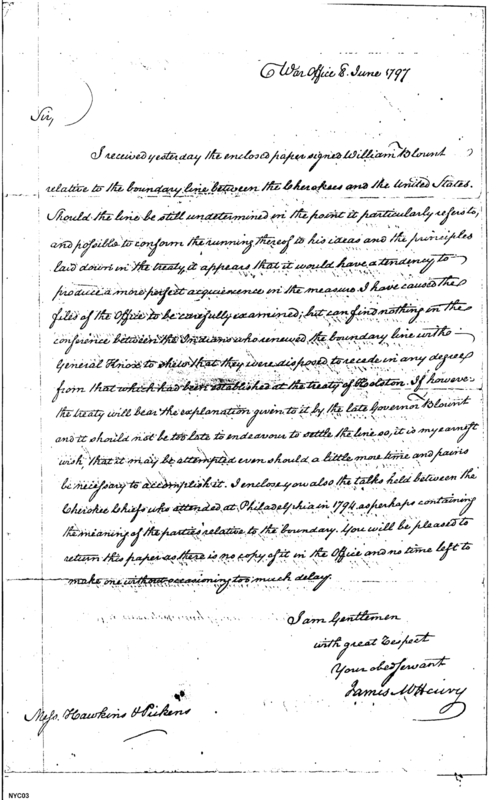 War Office 8. June 1797
Sir,
I received yesterday the enclosed paper signed William Blount
relative to the boundary line between the Cherokees and the United States.
Should the line be still undetermined in the point it particularly refers to,
and possible to conform the running thereof to his ideas and the principles
laid down in the treaty, it appears that it would have a tendency to
produce a more perfect acquiesence in the measure. I have caused the
files of the Office to be carefully examined; but can find nothing in the
conference between the Indians who renewed the boundary line with
General Knox to shew that they were disposed to recede in any degree
from that which had been established at the treaty of Holston. If however
the treaty will bear the explanation given to it by the late Governor Blount
and it should not be too late to endeavour to settle the line so, it is my earnest
wish that it may be attempted even should a little more time and pains
be necessary to accomplish it. I enclose you also the talks held between the
Cherokee Chiefs who attended at Philadelphia in 1794 as perhaps containing
the meaning of the parties relative to the boundary. You will be pleased to
return this paper as there is no copy of it in the Office and no time left to
make one without occasioning too much delay.
I am Gentlemen
with great respect
Your obed servant
James McHenry
Mess. Hawkins & Pickens
NYC03